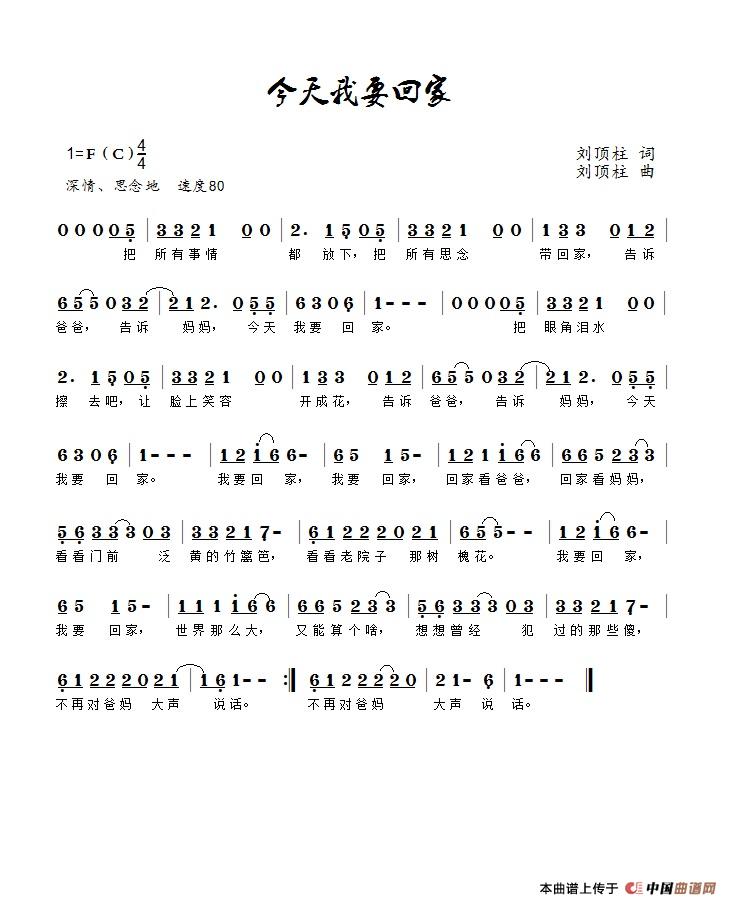 今天我要回家
1=F（C）4/4
刘顶柱 词
刘顶柱 曲
深情、思念地 速度80
0 0 0 0 5 | 3 3 2 1 0 0 | 2. 1 5 0 5 | 3 3 2 1 0 0 | 1 3 3 0 1 2 |
把 所有事情 都 放下，把 所有思念 带回家，告诉
6 5 5 0 3 2 | 2 1 2. 0 5 5 | 6 3 0 6 | 1 - - - | 0 0 0 0 5 | 3 3 2 1 0 0 |
爸爸，告诉 妈妈，今天 我要 回 家。 把 眼角泪水
2. 1 5 0 5 | 3 3 2 1 0 0 | 1 3 3 0 1 2 | 6 5 5 0 3 2 | 2 1 2. 0 5 5 |
擦 去吧，让 脸上笑容 开成花，告诉 爸爸，告诉 妈妈，今天
6 3 0 6 | 1 - - - | 1 2 i 6 6 - | 6 5 1 5 - | 1 2 1 i 6 6 | 6 6 5 2 3 3 |
我要 回 家。 我要回家，我要 回家，回家看爸爸，回家看妈妈，
5 6 3 3 3 0 3 | 3 3 2 1 7 - | 6 1 2 2 2 0 2 1 | 6 5 5 - - | 1 2 i 6 6 - |
看看门前 泛 黄的竹篱笆，看看老院子 那树 槐花。 我要回家，
6 5 1 5 - | 1 1 1 i 6 6 | 6 6 5 2 3 3 | 5 6 3 3 3 0 3 | 3 3 2 1 7 - |
我要 回家，世界那么大，又能算个啥，想想曾经 犯 过的那些傻，
6 1 2 2 2 0 2 1 | 1 6 1 - - :‖ 6 1 2 2 2 2 0 | 2 1 - 6 | 1 - - - ‖
不再对爸妈 大声 说话。 不再对爸妈 大声 说 话。
本曲谱上传于 中国曲谱网